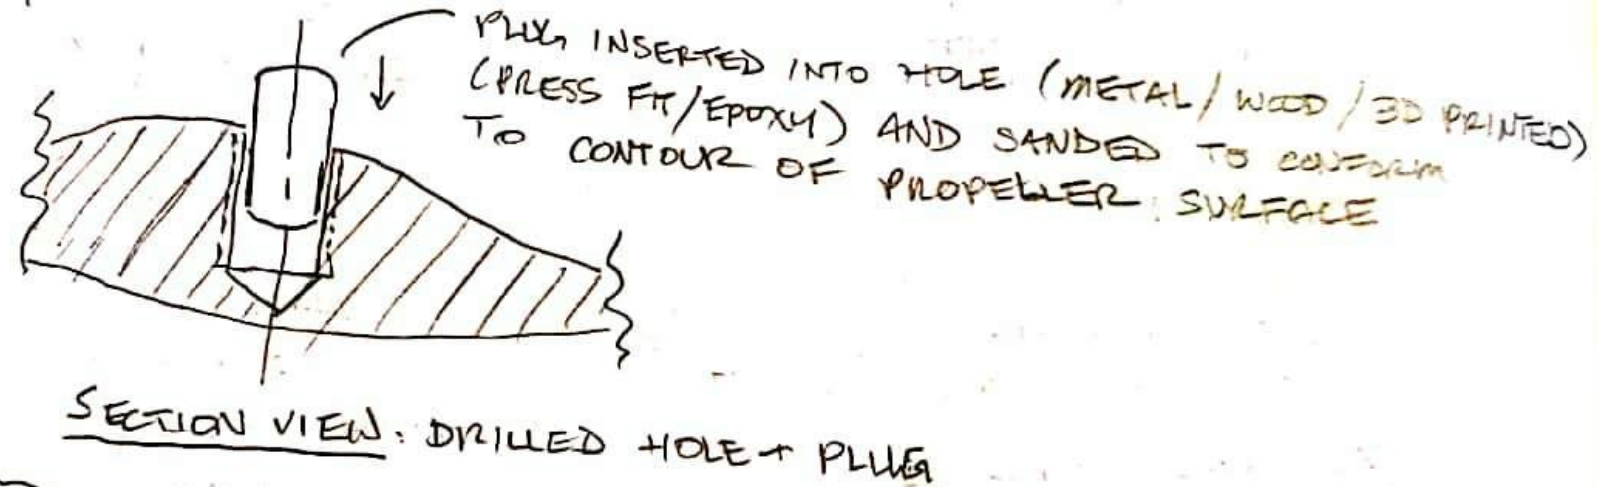 PLUG INSERTED INTO HOLE (METAL/WOOD/3D PRINTED)
(PRESS FIT/EPOXY) AND SANDED TO CONFORM
TO CONTOUR OF PROPELLER SURFACE
SECTION VIEW: DRILLED HOLE + PLUG